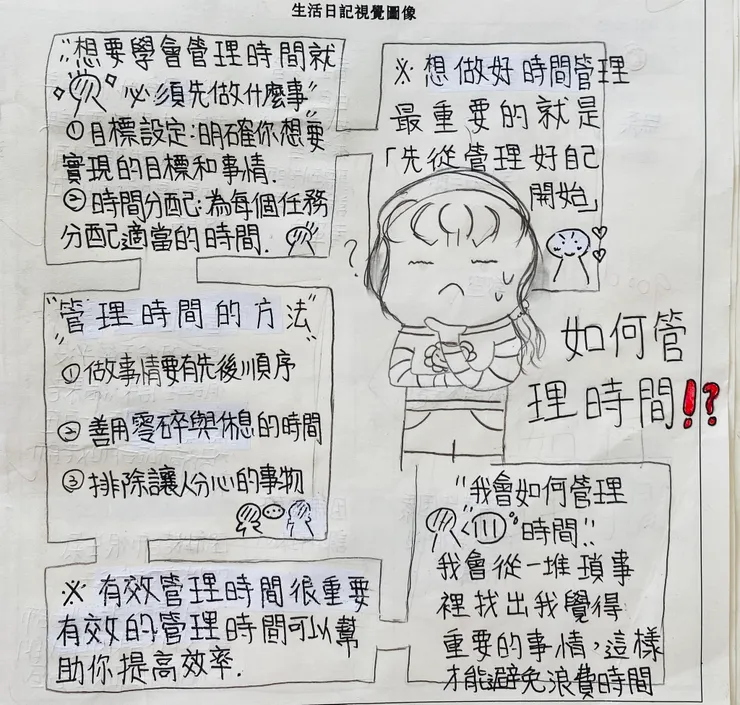 生活日記視覺圖像
"想要學會管理時間就
必須先做什麼事"
①目標設定:明確你想要
實現的目標和事情.
②時間分配:為每個任務
分配適當的時間.
※想做好時間管理
最重要的就是
「先從管理好自己
開始」
?
"管理時間的方法"
①做事情要有先後順序
②善用零碎與休息的時間
③排除讓人分心的事物
如何管
理時間!?
※有效管理時間很重要
有效的管理時間可以幫
助你提高效率.
"我會如何管理
時間"
我會從一堆瑣事
裡找出我覺得
重要的事情,這樣
才能避免浪費時間